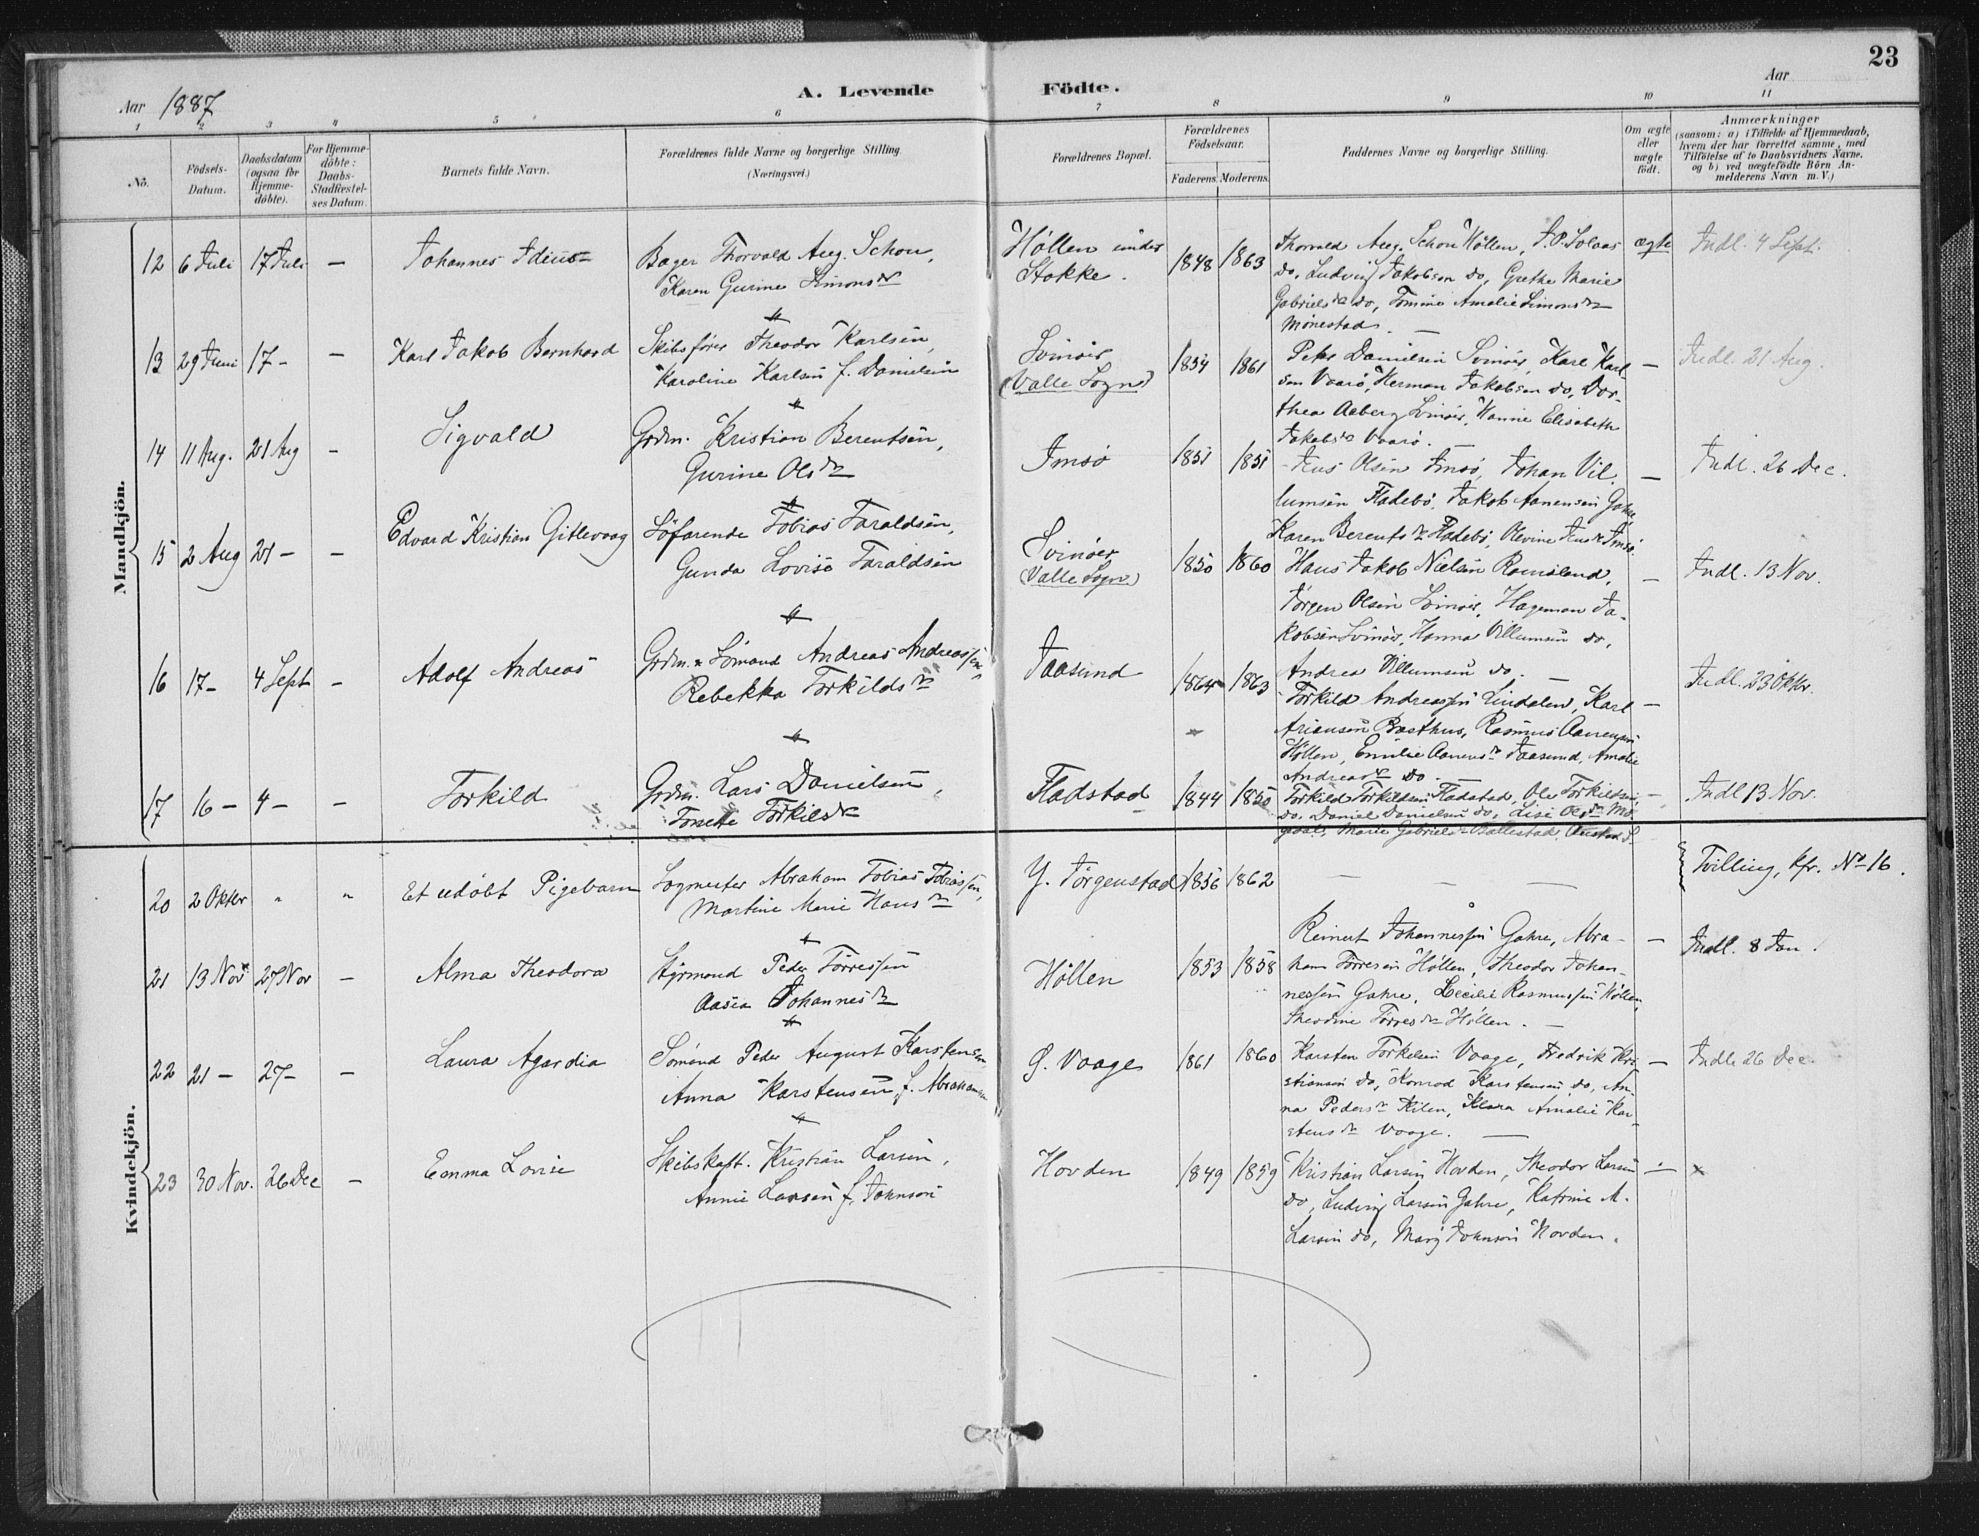 23
Aar 1887
A. Levende Födte.
Aar
1 2 3 4 5 6 7 8 9 10 11
No.
Födsels-Datum.
Daabsdatum (ogsaa for Hjemme-döbte).
For Hjemme-döbte: Daabs-Stadfæstel-ses Datum.
Barnets fulde Navn.
Forældrenes fulde Navne og borgerlige Stilling. (Næringsvei.)
Forældrenes Bopæl.
Forældrenes Födselsaar.
Faderens. Moderens.
Faddernes Navne og borgerlige Stilling.
Om ægte eller uægte födt.
Anmærkninger
(saasom: a) i Tilfælde af Hjemmedaab,
hvem der har forrettet samme, med
Tilföielse af to Daabsvidners Navne,
og b) ved uægtefödte Börn An-
melderens Navn m. V.)
Mandkjön.
12 6 Juli 17 Juli — Johannes Idius
Bager Thorvald Aug. Schou,
Karen Gurine Simonsdr
Höllen under
Stokke.
1848 1863
Thorvald Aug. Schou Höllen, S. P. Solaas
do, Ludvig Jakobsen do, Grethe Marie
Gabrielsdr do, Tomine Amalie Simonsdr
Mönestad. —
ægte
Indl. 4 Sept.
13 29 Juni 17 — — Karl Jakob Bernhard
Skibsförer Theodor Karlsen,
Karoline Karlsen f. Danielsen
Svinöer
(Valle Sogn)
1854 1861
Peter Danielsen Svinöer, Karl Karl-
sen Vaarö, Herman Jakobsen do, Dor-
thea Aaberg Svinöer, Hanne Elisabeth
Jakobsdr Vaarö.
—
Indl. 21 Aug.
14 11 Aug. 21 Aug — Sigvald
Grdm. Kristian Berentsen,
Gurine Olsdr
Imsö
1851 1851
Jens Olsen Imsö, Johan Vil-
lumsen Fladebö, Jakob Aanensen Gahre,
Karen Berentsdr Fladebö, Olevine Jensdr Imsö.
—
Indl. 26 Dec.
15 2 Aug 21 — — Edvard Kristian Gitlevaag
Söfarende Tobias Taraldsen,
Gunda Lovise Taraldsen
Svinöer
(Valle Sogn)
1850 1860
Hans Jakob Nielsen Romsland,
Jörgen Olsen Svinöer, Hageman Ja-
kobsen Svinöer, Hanna Villumsen do,
Andrea Villumsen do. —
—
Indl. 13 Nov.
16 17 — 4 Sept — Adolf Andreas
Grdm. & Sömand Andreas Andreassen
Rebekka Torkildsdr
Taasund
1864 1863
Torkild Andreassen Lindalen, Karl
Ariansen Basthus, Rasmus Aanensen
Höllen, Emilie Aanensdr Taasund, Amalie
Andreasdr do.
—
Indl. 23 Oktbr.
17 16 — 4 — — Torkild
Grdm. Lars Danielsen,
Tonette Torkilsdr
Fladstad
1844 1850
Torkild Torkildsen Fladstad, Ole Torkildsen
do, Daniel Danielsen do, Lise Olsdr
Marie Gabrielsdr Ballestad,
—
Indl 13 Nov.
Kvindekjön.
20 2 Oktbr " " Et udöbt Pigebarn
Abraham Tobias Tobiassen,
Martine Marie Hansdr
Y. Jörgenstad
1856 1862
— — —
Tvilling, kfr. No 16.
21 13 Nov 27 Nov — Alma Theodora
Styrmand Peder Törressen
Aasea Johannesdr
Höllen
1853 1858
Reinert Johannessen Gahre, Abra-
ham Törresen Höllen, Theodor Johan-
nessen Gahre, Cecilie Rasmussen Höllen,
Theodine Törresdr Höllen. —
—
Indl. 8 Jan.
22 21 — 27 — — Laura Agardia
Sömand Peder August Karstensen
Anna Karstensen f. Abrahamsen
G. Vaage
1861 1860
Karsten Torkelsen Vaage, Fredrik Kri-
stiansen do, Konrad Karstensen do, An-
na Pedersdr Kilen, Klara Amalie Kar-
stensdr Vaage. —
—
Indl. 26 Dec.
23 30 Nov. 26 Dec — Emma Lovise
Skibskapt. Kristian Larsen,
Annie Larsen f. Johnson
Hovden
1849 1859
Kristian Larsen Hovden, Theodor Larsen
do, Ludvig Larsen Gahre, Katrine M.
Larsen do, Mary Johnson Hovden.
—